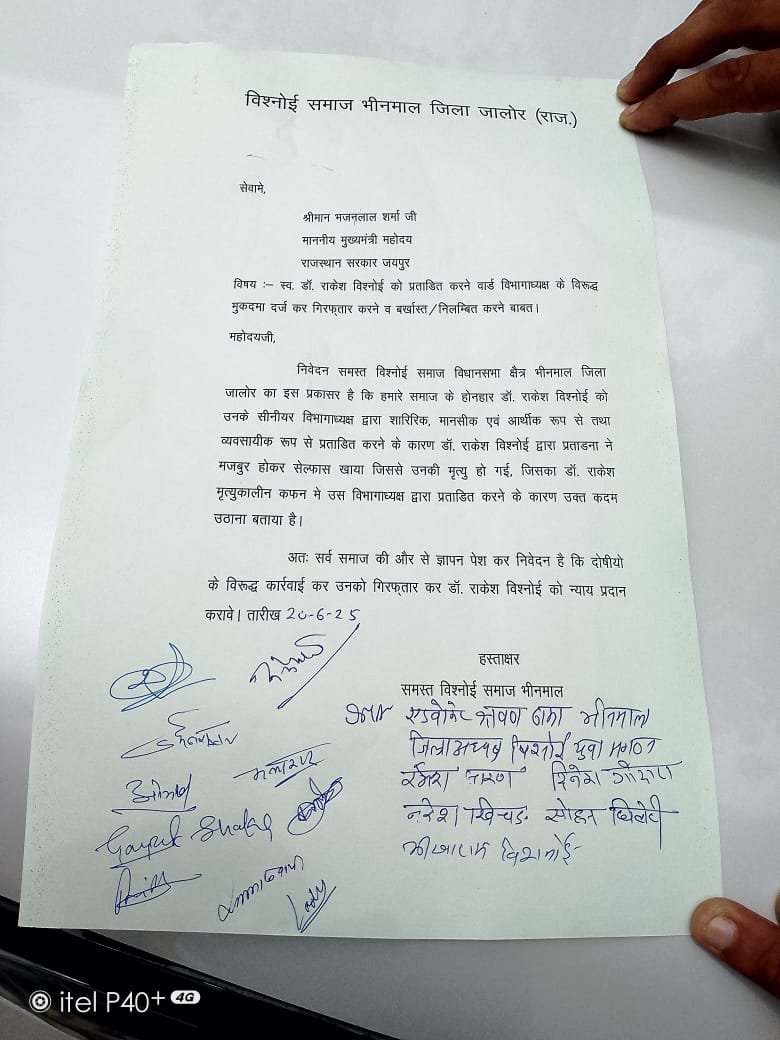 विश्नोई समाज भीनमाल जिला जालोर (राज.)
सेवामे,
श्रीमान भजनलाल शर्मा जी
माननीय मुख्यमंत्री महोदय
राजस्थान सरकार जयपुर
विषय :– स्व. डॉ. राकेश विश्नोई को प्रताडित करने वार्ड विभागाध्यक्ष के विरूद्ध
मुकदमा दर्ज कर गिरफ्तार करने व बर्खास्त/निलम्बित करने बाबत।
महोदयजी,
निवेदन समस्त विश्नोई समाज विधानसभा क्षैत्र भीनमाल जिला
जालोर का इस प्रकासर है कि हमारे समाज के होनहार डॉ. राकेश विश्नोई को
उनके सीनीयर विभागाध्यक्ष द्वारा शारिरिक, मानसीक एवं आर्थीक रूप से तथा
व्यवसायीक रूप से प्रताडित करने के कारण डॉ. राकेश विश्नोई द्वारा प्रताडना ने
मजबुर होकर सेल्फास खाया जिससे उनकी मृत्यु हो गई, जिसका डॉ. राकेश
मृत्युकालीन कफन मे उस विभागाध्यक्ष द्वारा प्रताडित करने के कारण उक्त कदम
उठाना बताया है।
अतः सर्व समाज की और से ज्ञापन पेश कर निवेदन है कि दोषीयो
के विरूद्ध कार्रवाई कर उनको गिरफ्तार कर डॉ. राकेश विश्नोई को न्याय प्रदान
करावे। तारीख 20-6-25
हस्ताक्षर
समस्त विश्नोई समाज भीनमाल
एडवोकेट श्रवण ढाका भीनमाल
जिला अध्यक्ष विश्नोई युवा
दिनेश
नरेश खिचड़ सोहन
itel P40+ 4G